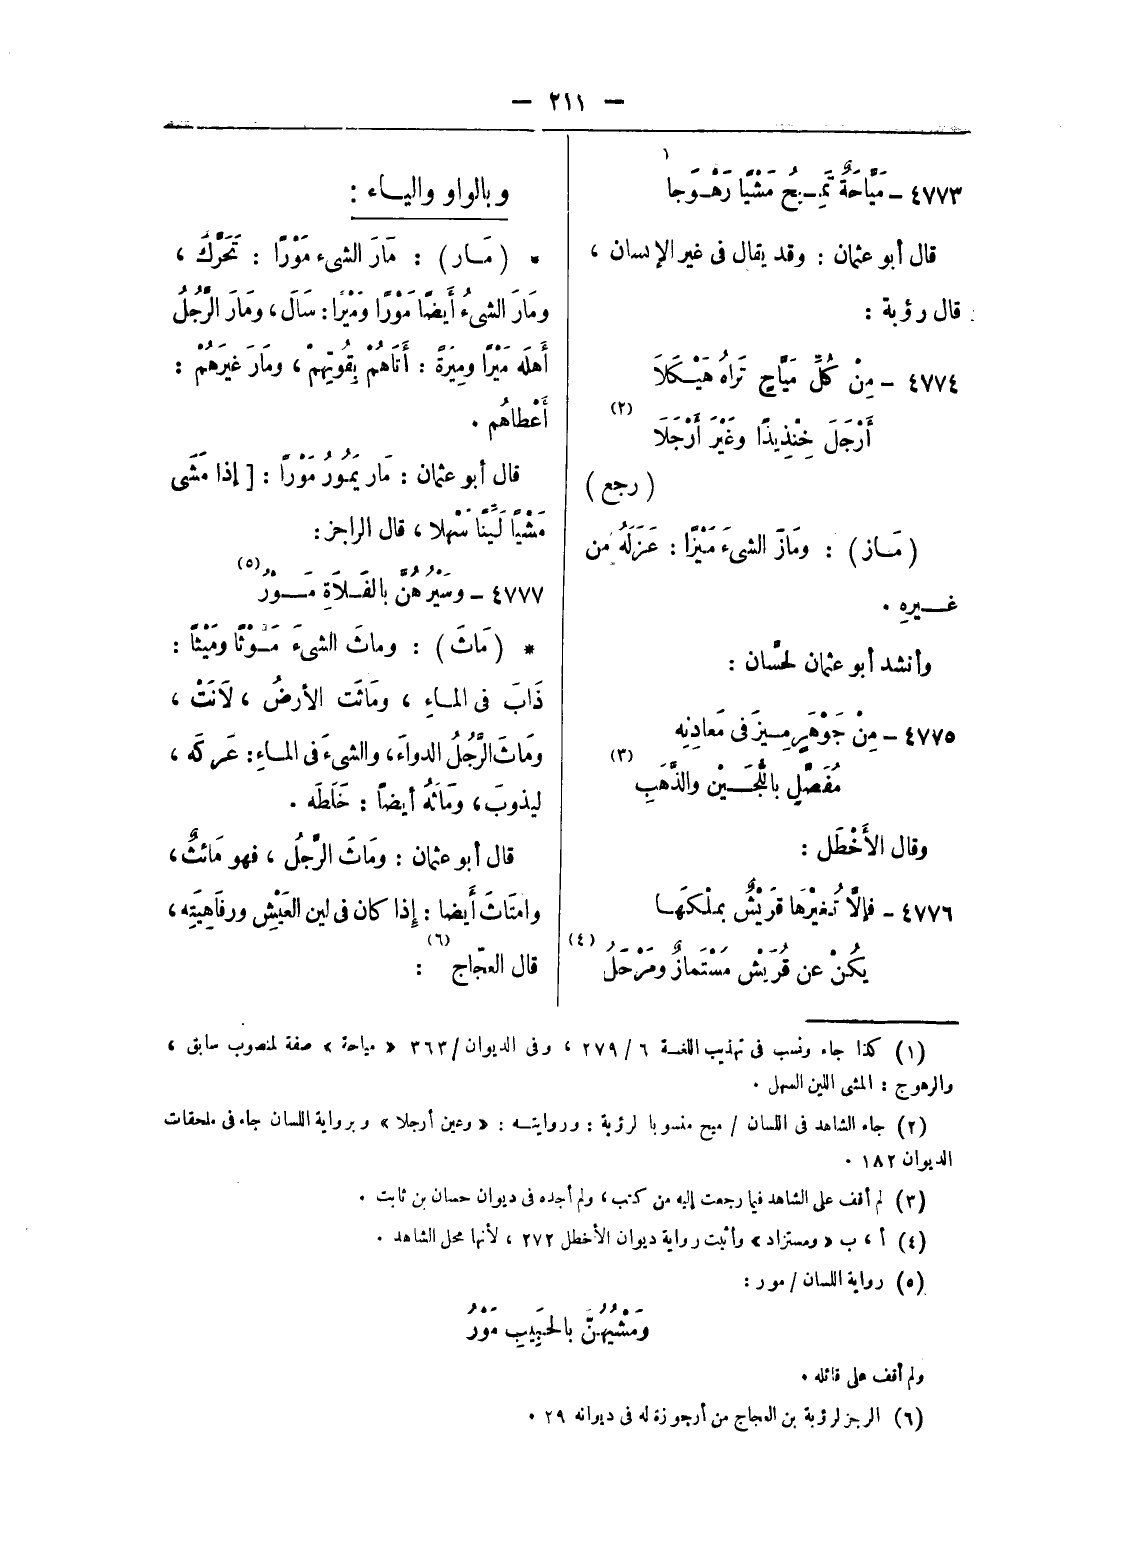 — ٢١١ —
٤٧٧٣ – مَيَّاحَةٌ تَمِيحُ مَشْيًا رَهْوَجَا (١)
قال أبو عثمان : وقد يقال فى غير الإنسان ،
قال رؤبة :
٤٧٧٤ – مِنْ كُلِّ مَيَّاحٍ تَرَاهُ هَيْكَلَا
أَرْجَلَ خِنْذِيذًا وغَيْرَ أَرْجَلَا (٢)
( رجع )
( مَاز ) : ومَازَ الشىءَ مَيْزًا : عَزَلَهُ من
غيرِهِ .
وأنشد أبو عثمان لحسَّان :
٤٧٧٥ – مِنْ جَوْهَرٍ مِيزَ فى مَعادِنِه
مُفَصَّلٍ باللُّجَيْنِ والذَّهَبِ (٣)
وقال الأَخْطَل :
٤٧٧٦ – فإلَّا تُغيْرْهَا قُرَيْشٌ بملْكَهَا
يكُنْ عن قُرَيْشٍ مَسْتَمازٌ ومَزْحَلُ (٤)
وبالواو والياء :
* ( مَار ) : مَارَ الشىء مَوْرًا : تَحَرَّكَ ،
ومَارَ الشىءُ أيضًا مَوْرًا ومَيْرًا : سَالَ ، ومَارَ الرَّجُلُ
أهلَه مَيْرًا ومِيرَةً : أَتَاهُمْ بِقُوتِهِمْ ، ومَارَ غيرَهُمْ :
أَعْطاهُم .
قال أبو عثمان : مَار يَمُورُ مَوْرًا : [ إذا مَشَى
مَشْيًا لَيِّنًا سَهْلا ، قال الراجز :
٤٧٧٧ – وسَيْرُهُنَّ بالفَلَاةِ مَوْرُ (٥)
* ( مَاثَ ) : وماثَ الشىءَ مَوْثًا ومَيْثًا :
ذَابَ فى الماءِ ، ومَاثَت الأرضُ ، لَانَتْ ،
ومَاثَ الرَّجُلُ الدواءَ ، والشىءَ فى الماءِ : عَركَه ،
ليذوبَ ، ومَاثَهُ أيضاً : خَلَطَه .
قال أبو عثمان : ومَاثَ الرَّجلُ ، فهو مَائثٌ ،
وامتَاثَ أَيضا : إِذا كان فى لين العَيْشِ ورفَاهِيَتِه ،
قال العجّاج (٦) :
(١) كذا جاء ونسب فى تهذيب اللغة ٦ / ٢٧٩ ، وفى الديوان / ٣٦٣ « مياحة » صفة لمنصوب سابق ،
والرهوج : المشى اللين السهل .
(٢) جاء الشاهد فى اللسان / ميح منسوبا لرؤبة : وروايته : « وعين أرجلا » وبرواية اللسان جاء فى ملحقات
الديوان ١٨٢ .
(٣) لم أقف على الشاهد فيما رجعت إليه من كتب ، ولم أجده فى ديوان حسان بن ثابت .
(٤) أ ، ب « ومستزاد » وأثبت رواية ديوان الأخطل ٢٧٢ ، لأنها محل الشاهد .
(٥) رواية اللسان / مور :
ومَشْيُهُنَّ بالحَبِيبِ مَوْرُ
ولم أقف على قائله .
(٦) الرجز لرؤبة بن العجاج من أرجوزة له فى ديوانه ٢٩ .